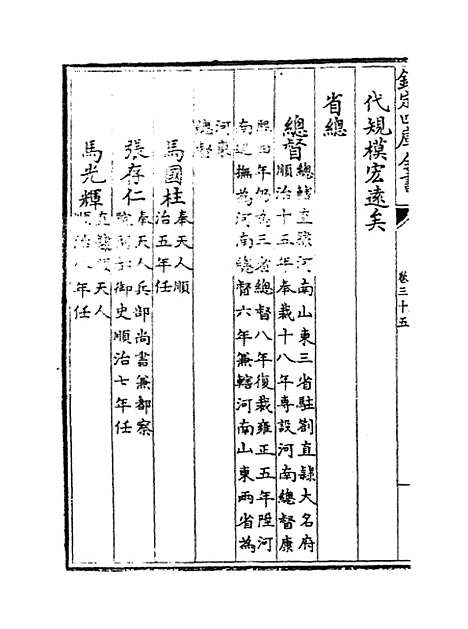 欽定四庫全書
卷三十五
代規模宏遠矣
省總
總督總轄直隸河南山東三省駐劄直隸大名府
順治十五年奉裁十八年專設河南總督康
熙四年仍為三省總督八年復裁雍正五年陞河
南巡撫為河南總督六年兼轄河南山東兩省為
河東
總督
馬國柱奉天人順
治五年任
張存仁奉天人兵部尚書兼都察
院副都御史順治七年任
馬光輝直隸順天人
順治八年任